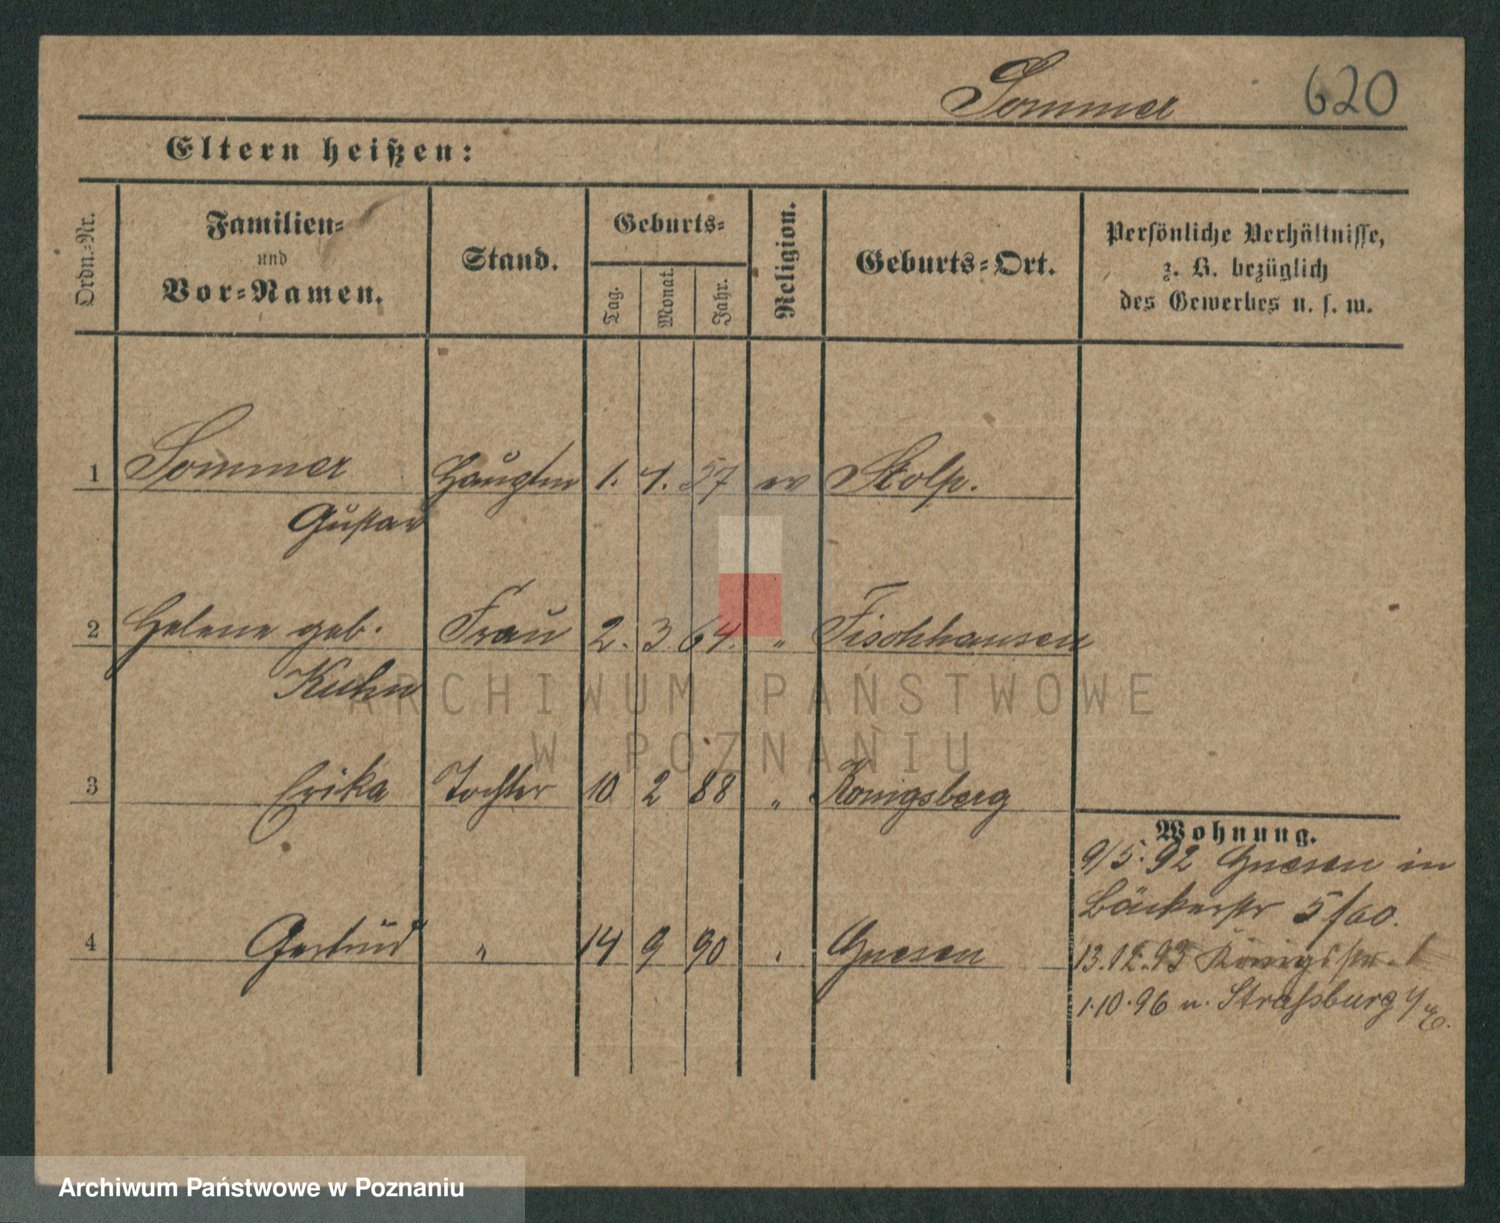 Sommer 620
Eltern heißen:
Ordn.-Nr.
Familien-
und
Vor-Namen.
Stand.
Geburts-
Tag.
Monat.
Jahr.
Religion.
Geburts-Ort.
Persönliche Verhältnisse,
z. B. bezüglich
des Gewerbes u. s. w.
1 Sommer Hauptm 1. 1. 57 ev Stolp.
Gustav
2 Helene geb. Frau 2. 3. 64. " Fischhausen
Kuhn
3 Erika Tochter 10 2 88 " Königsberg
Wohnung.
9/5. 92 Gnesen in
Bäckerstr 5/60.
4 Gertrud " 14 9 90 " Gnesen
13.12.93 Königsstr.
1.10.96 n. Straßburg
ARCHIWUM PAŃSTWOWE
W POZNANIU
Archiwum Państwowe w Poznaniu